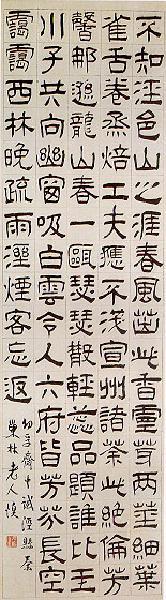 不知涇邑山之涯春風茁此香靈芽兩莖細葉
雀舌卷烝焙工夫應不淺宣州諸茶此絕倫芳
馨那遜龍山春一甌瑟瑟散輕蕊品題誰比玉
川子共向幽窗吸白雲令人六府皆芳芬長空
靄靄西林晚疏雨溼煙客忘返
幼孚齋中試涇縣茶
巢林老人